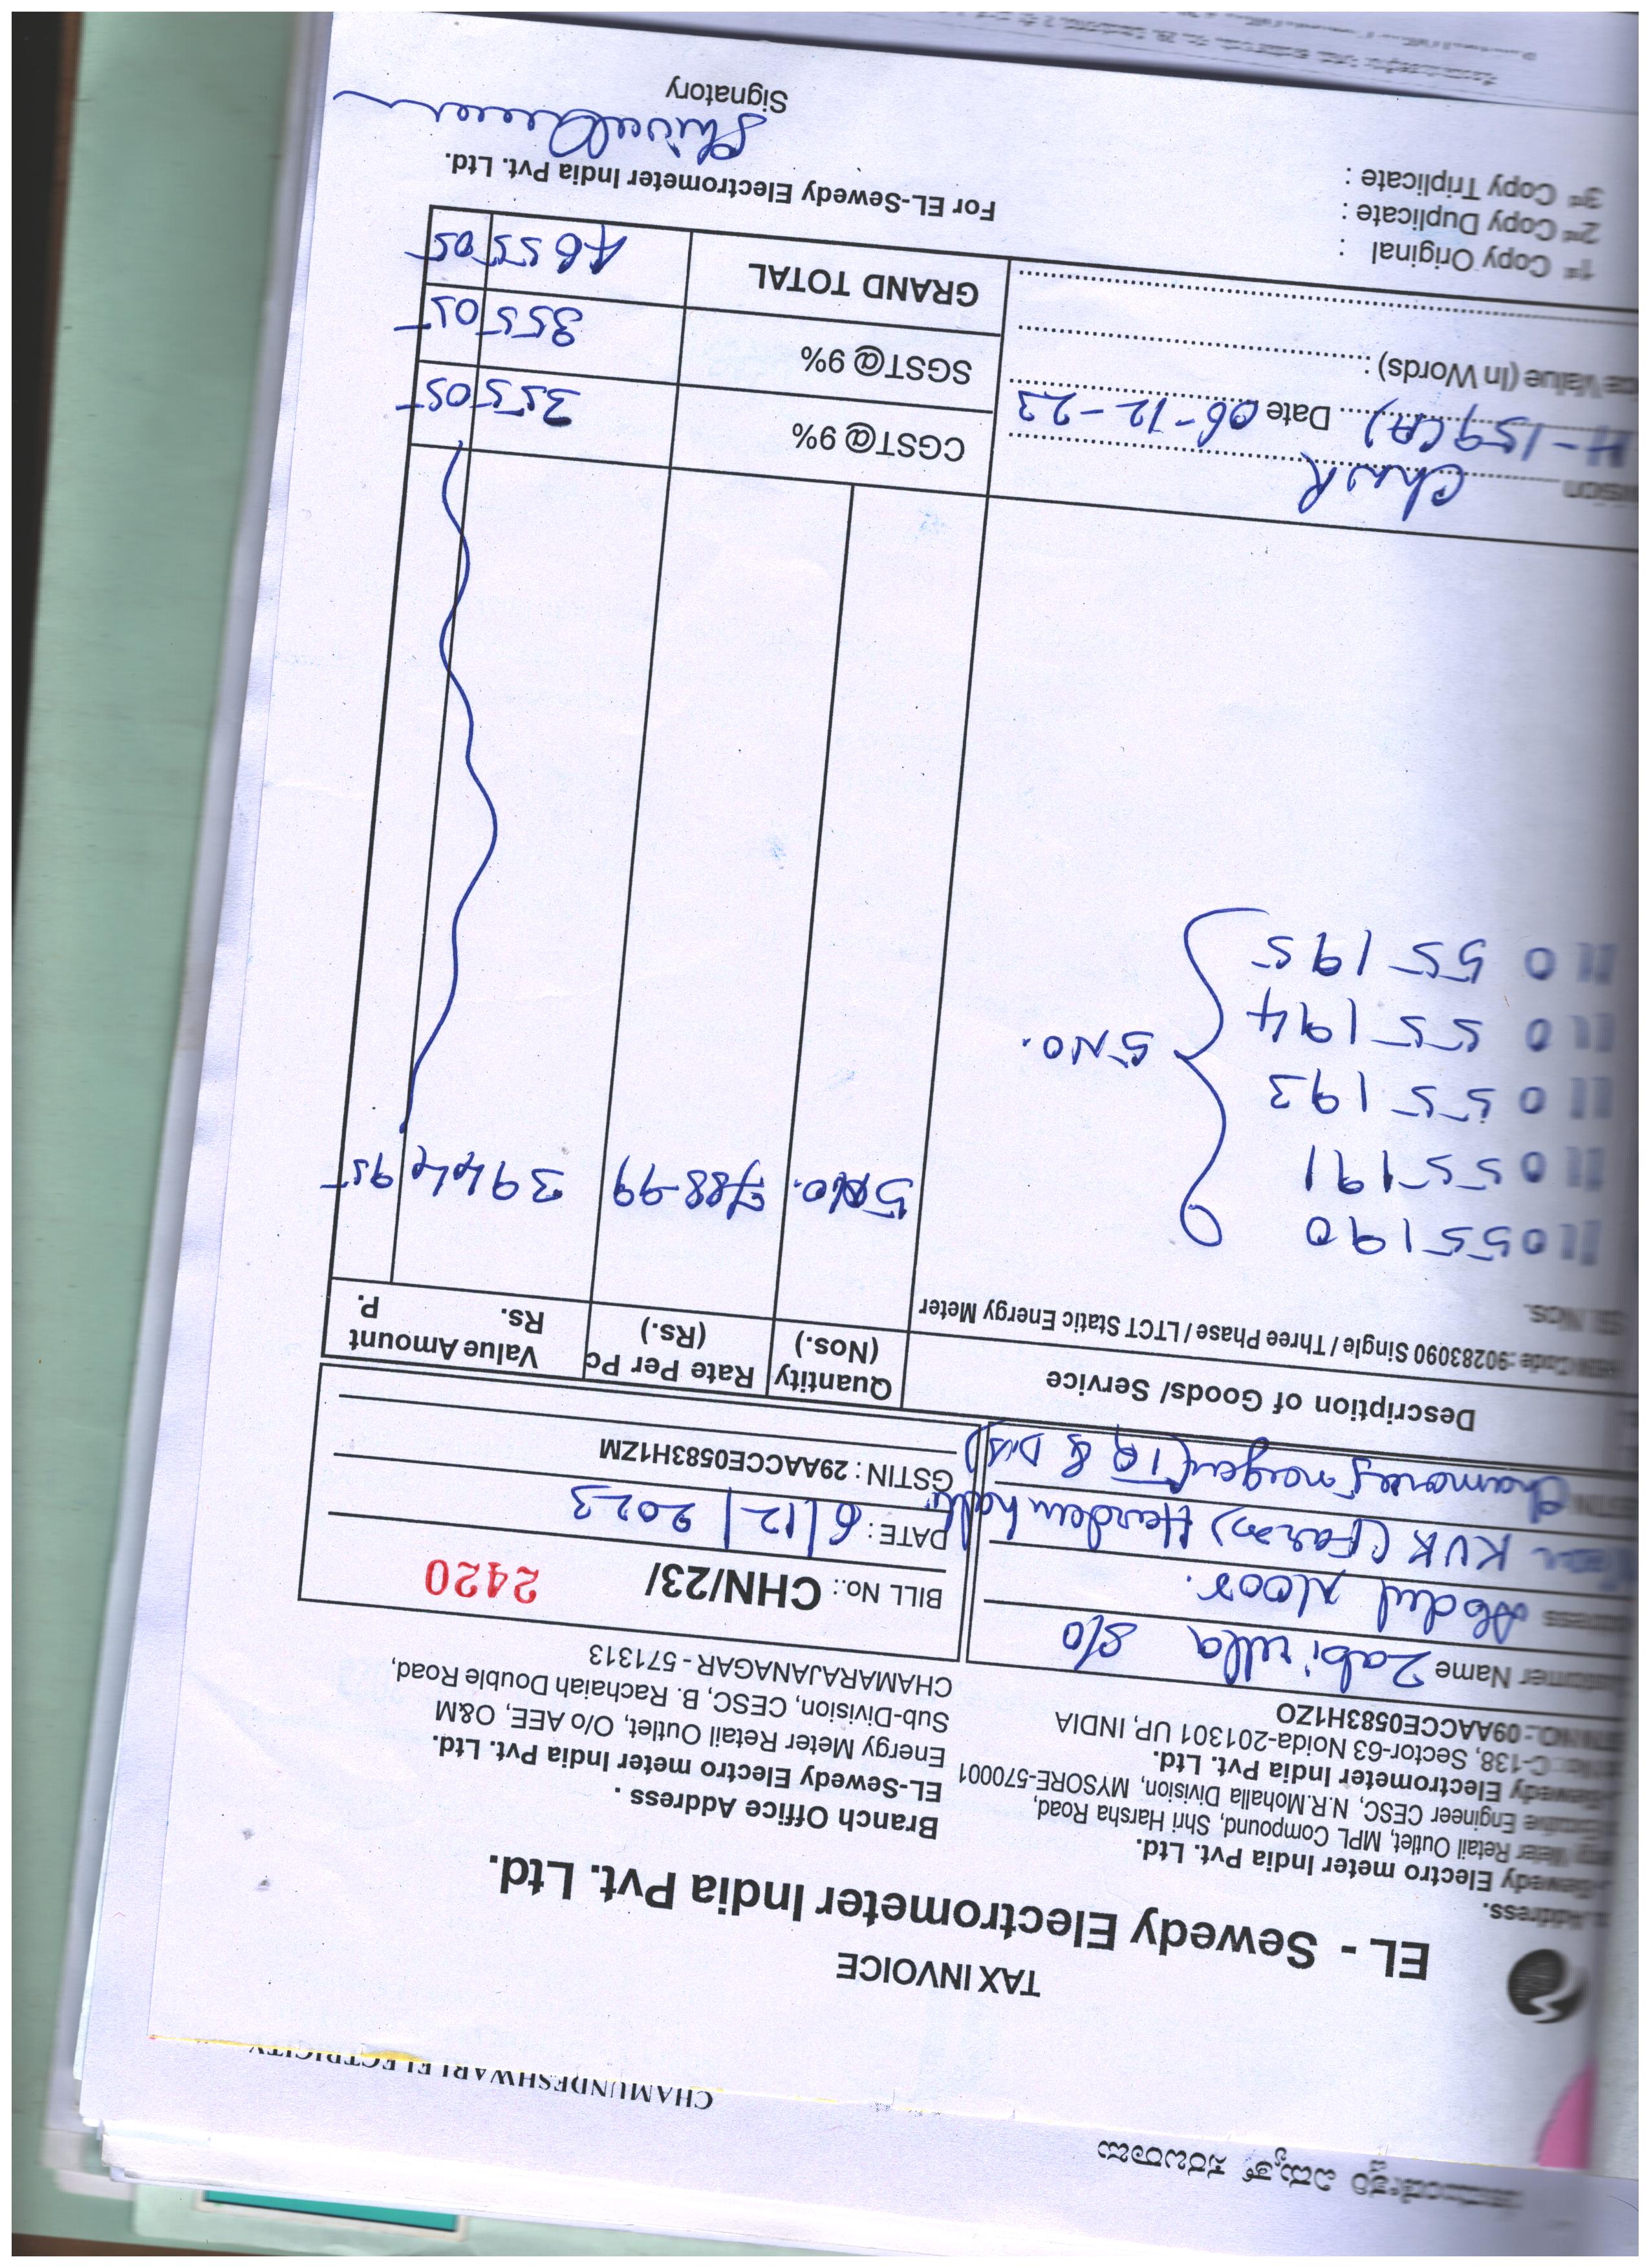 ಎದ್ಯುತ್ ಸರಬರಾಜು
CHAMUNDESHWARI ELECTRICITY
TAX INVOICE
EL - Sewedy Electrometer India Pvt. Ltd.
Address.
Sewedy Electro meter India Pvt. Ltd.
Meter Retail Outlet, MPL Compound, Shri Harsha Road,
Engineer CESC, N.R.Mohalla Division, MYSORE-570001
Sewedy Electrometer India Pvt. Ltd.
C-138, Sector-63 Noida-201301 UP, INDIA
09AACCE0583H1ZO
Branch Office Address .
EL-Sewedy Electro meter India Pvt. Ltd.
Energy Meter Retail Outlet, O/o AEE, O&M
Sub-Division, CESC, B. Rachaiah Double Road,
CHAMARAJANAGAR - 571313
Name Zabiulla S/o
Abdul Noor.
KVK (Farm) Haradanahalli
BILL No.: CHN/23/ 2420
DATE : 6/12/2023
GSTIN : 29AACCE0583H1ZM
Description of Goods/ Service
Quantity (Nos.)
Rate Per Pc (Rs.)
Value Amount
Rs. P.
90283090 Single / Three Phase / LTCT Static Energy Meter
Sl. Nos.
11055190
11055191
11055193
11055194
11055195
5 No.
5 No. 788-99 3944 95
Chnr
H-159(A) Date 06-12-23
Value (In Words) :
CGST@ 9% 355 05
SGST@ 9% 355 05
GRAND TOTAL 4655 05
1st Copy Original :
2nd Copy Duplicate :
3rd Copy Triplicate :
For EL-Sewedy Electrometer India Pvt. Ltd.
Signatory